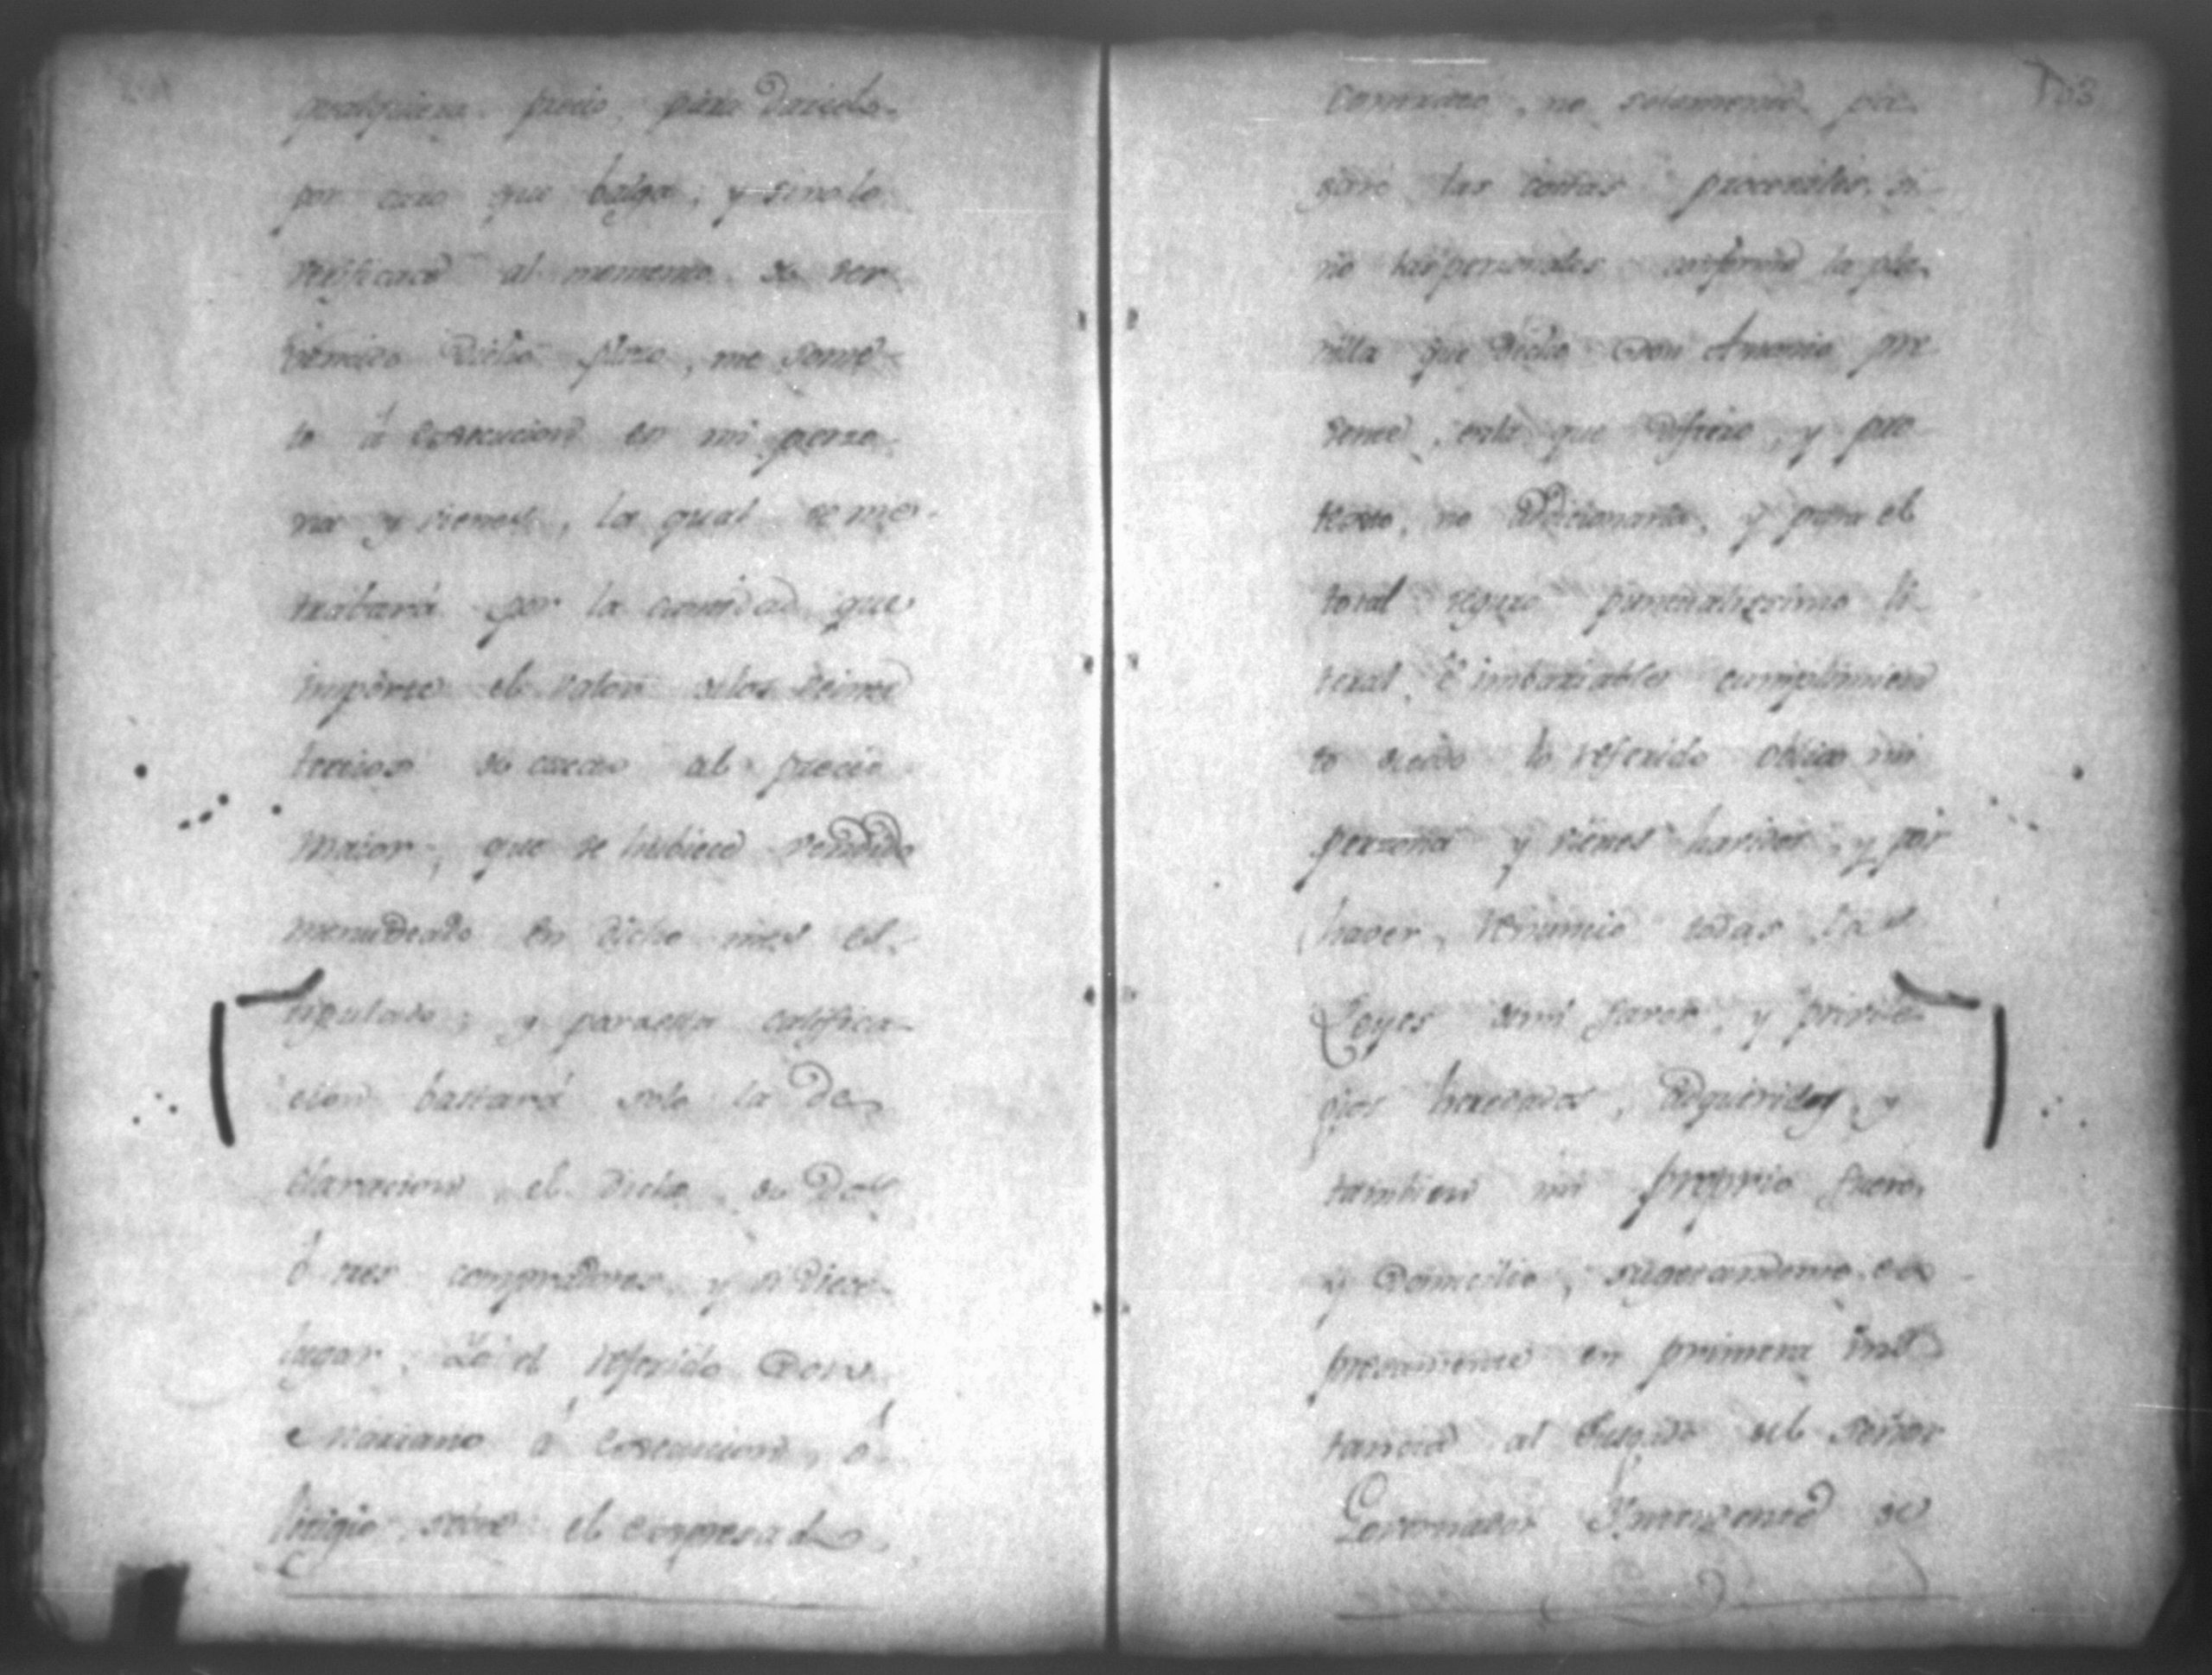 qualquiera precio, para darselo
por caro que balga, y sino lo
verificare al momento de ser
bencido dicho plazo, me some
to á execucion en mi perzo
na y vienes, la qual se me
trabará por la cantidad que
importe el valor de los veinte
tercios de cacao al precio
maior, que se hubiere vendido
menudeado en dicho mes es
tipulado, y para esta califica
cion bastará solo la de
claracion, el dicho de dos
ó tres compradores, y si diere
lugar, Yo el referido Don
Mariano á execucion, ó
litigio sobre el expresado
Contrato, no solamente pa
garé las costas procesales, si
no las personales conforme la pla
nilla que dicho Don Antonio pre
sente, en la que difiero, y pro
texto, no addicionarla, y para el
total seguro puntualissimo li
teral, é imbariable cumplimien
to de todo lo referido obligo mi
perzona y vienes havidos, y por
haver, renuncio todas las
Leyes de mi favor, y privile
gios heredados, adquiridos, y
tambien mi proprio fuero,
y Domicilio, sugetandome ex
presamente en primera ins
tancia al Jusgado del Señor
Governador Yntendente de